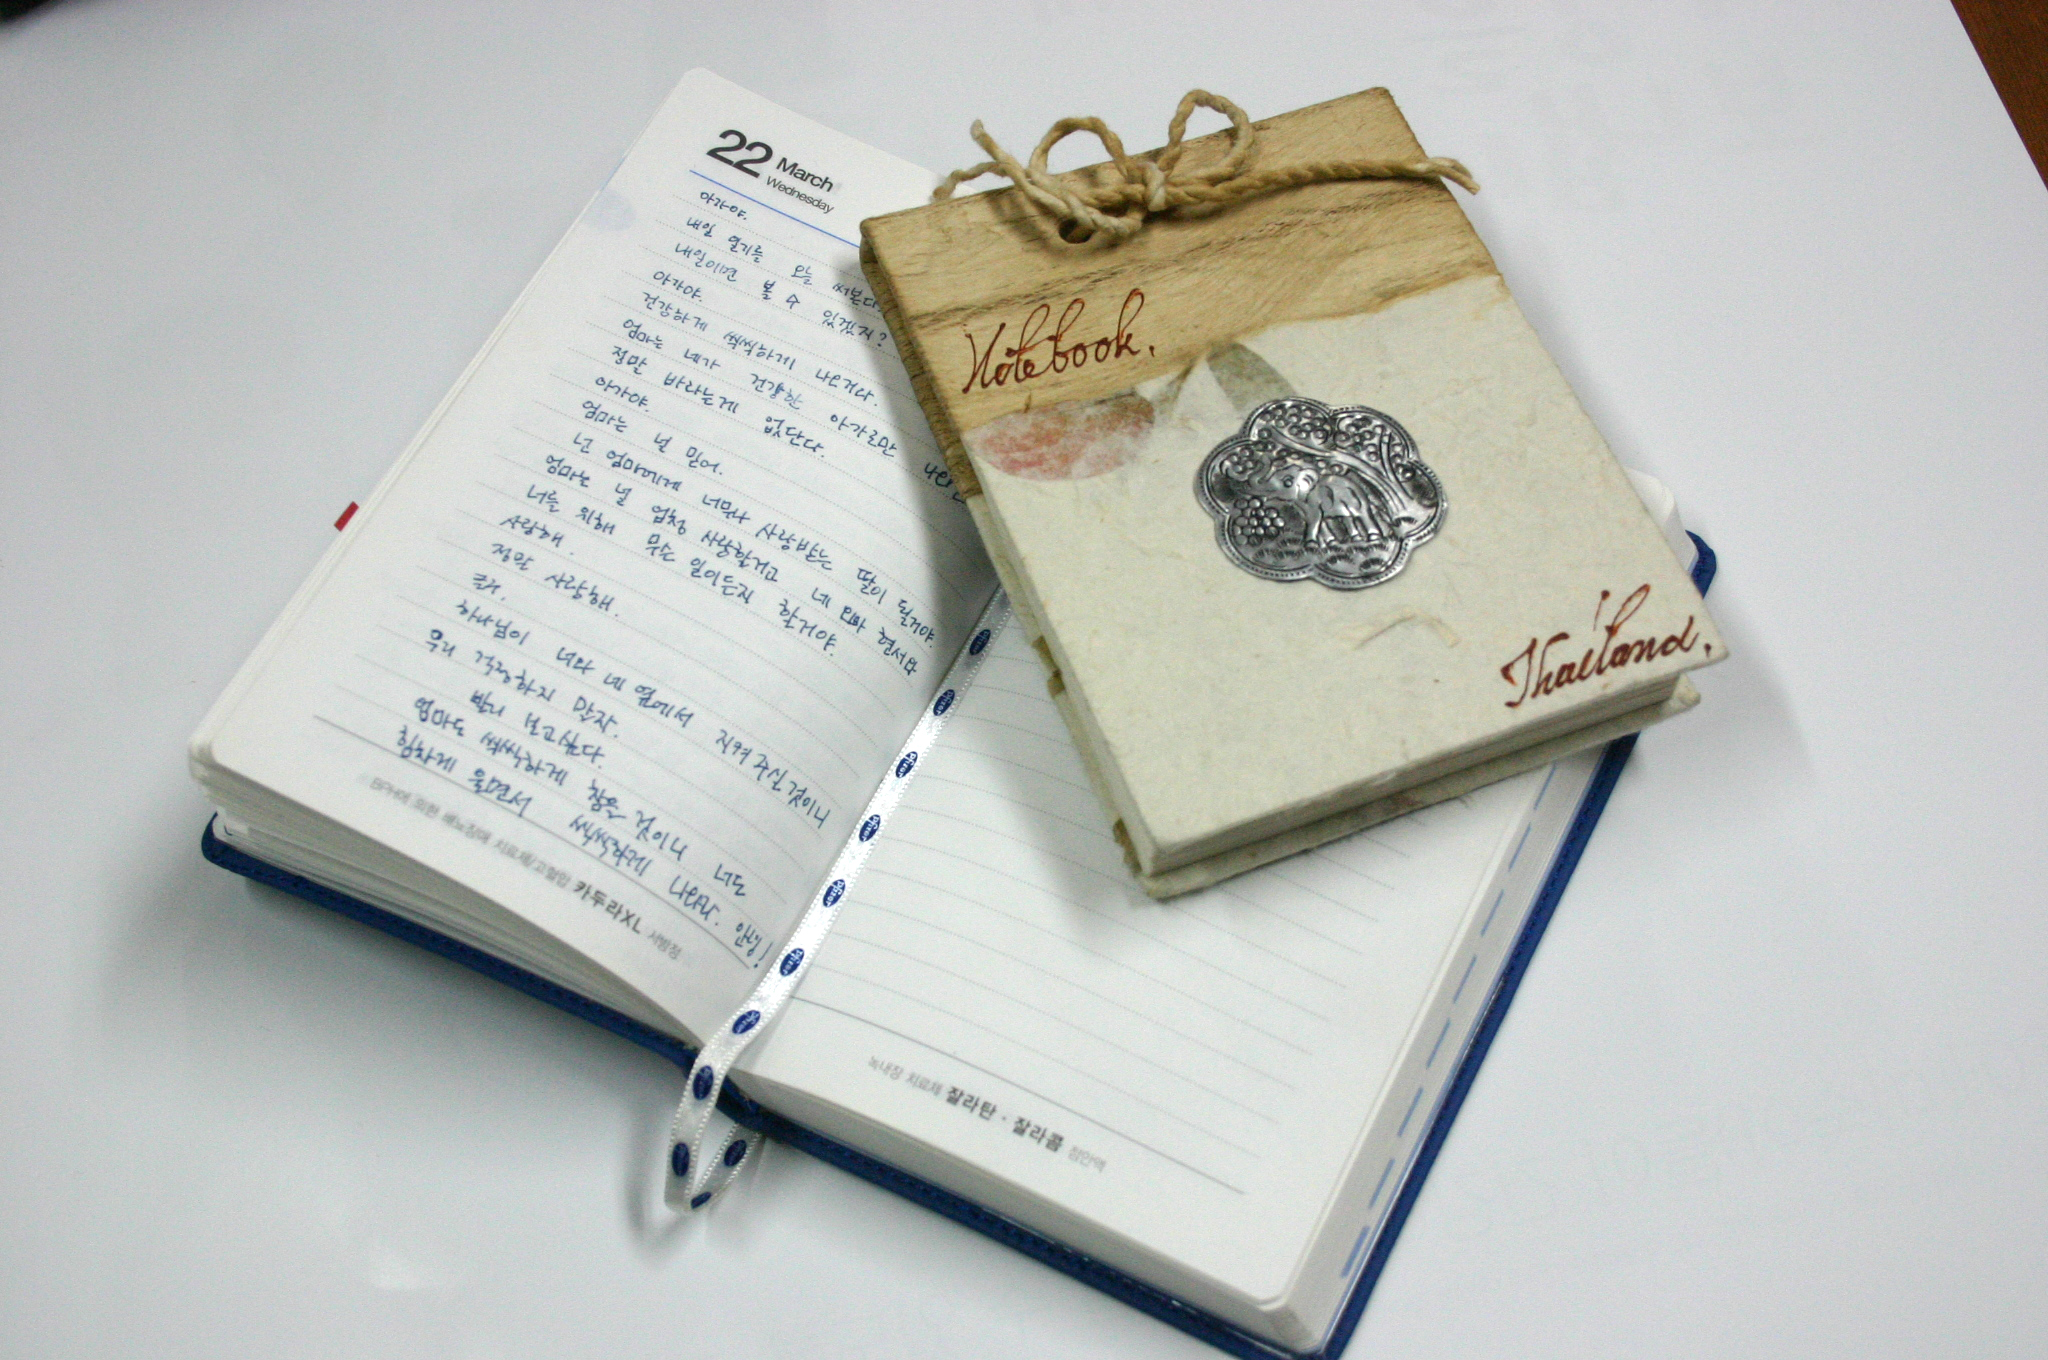 22 March
Wednesday
아가야.
내일 일기를 오늘 써본다
내일이면 볼 수 있겠지?
아가야.
건강하게 씩씩하게 나온거다.
엄마는 네가 건강한 아가로만
정말 바라는게 없단다.
아가야.
엄마는 널 믿어.
넌 엄마에게 너무나 사랑받는 딸이 될거야.
엄마는 널 엄청 사랑할거고 네 아빠
너를 위해 무슨 일이든지 할거야.
사랑해.
정말 사랑해.
하나님이 너와 네 옆에서 지켜 주실 것이니
우리 걱정하지 말자.
빨리 보고싶다.
엄마도 씩씩하게 참을 것이니 너도
힘차게 울면서 씩씩하게 나와라. 안녕!
BPH에 의한 배뇨장애 치료제/고혈압 카두라XL 서방정
Notebook.
Thailand.
Pfizer
Pfizer
Pfizer
Pfizer
Pfizer
Pfizer
Pfizer
녹내장 치료제 잘라탄 · 잘라콤 점안액